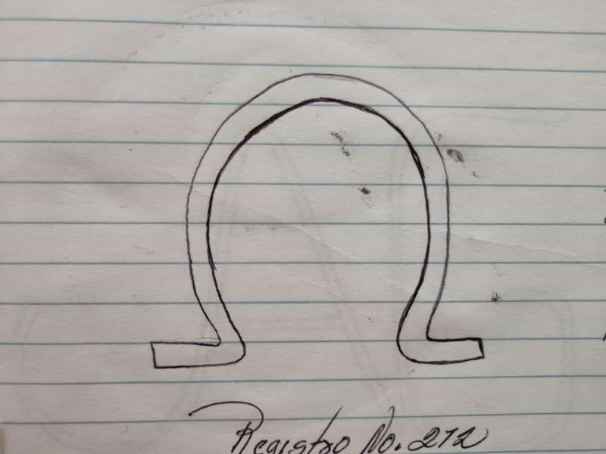 Registro No. 272